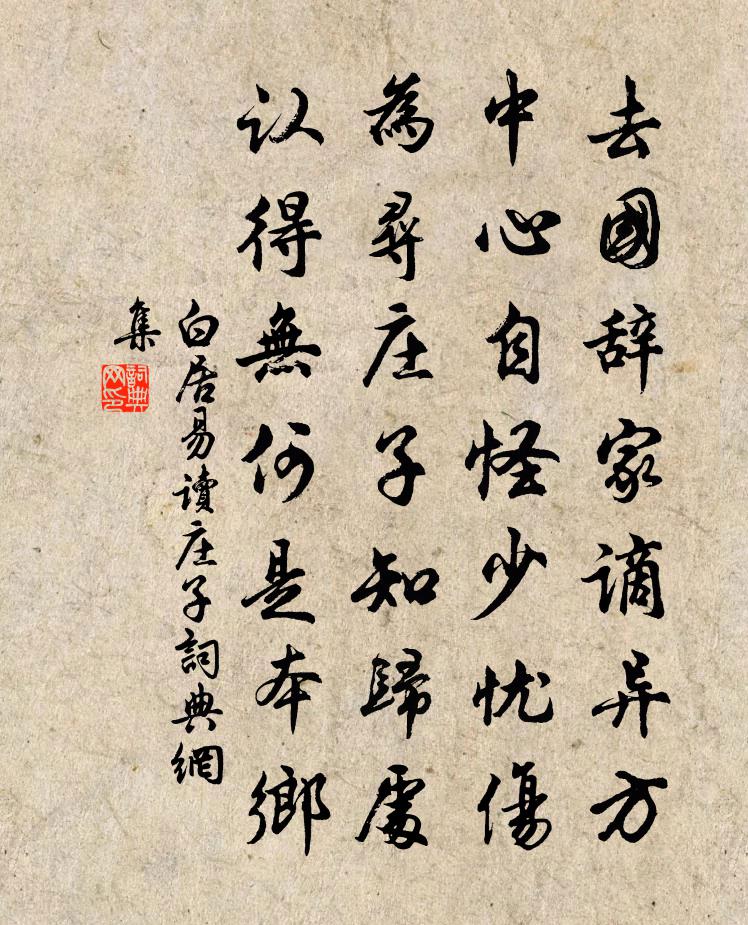 去國辞家谪异方
中心自怪少忧傷
為尋庄子知歸處
认得無何是本鄉
白居易讀庄子詞典網
集
詞典
网印